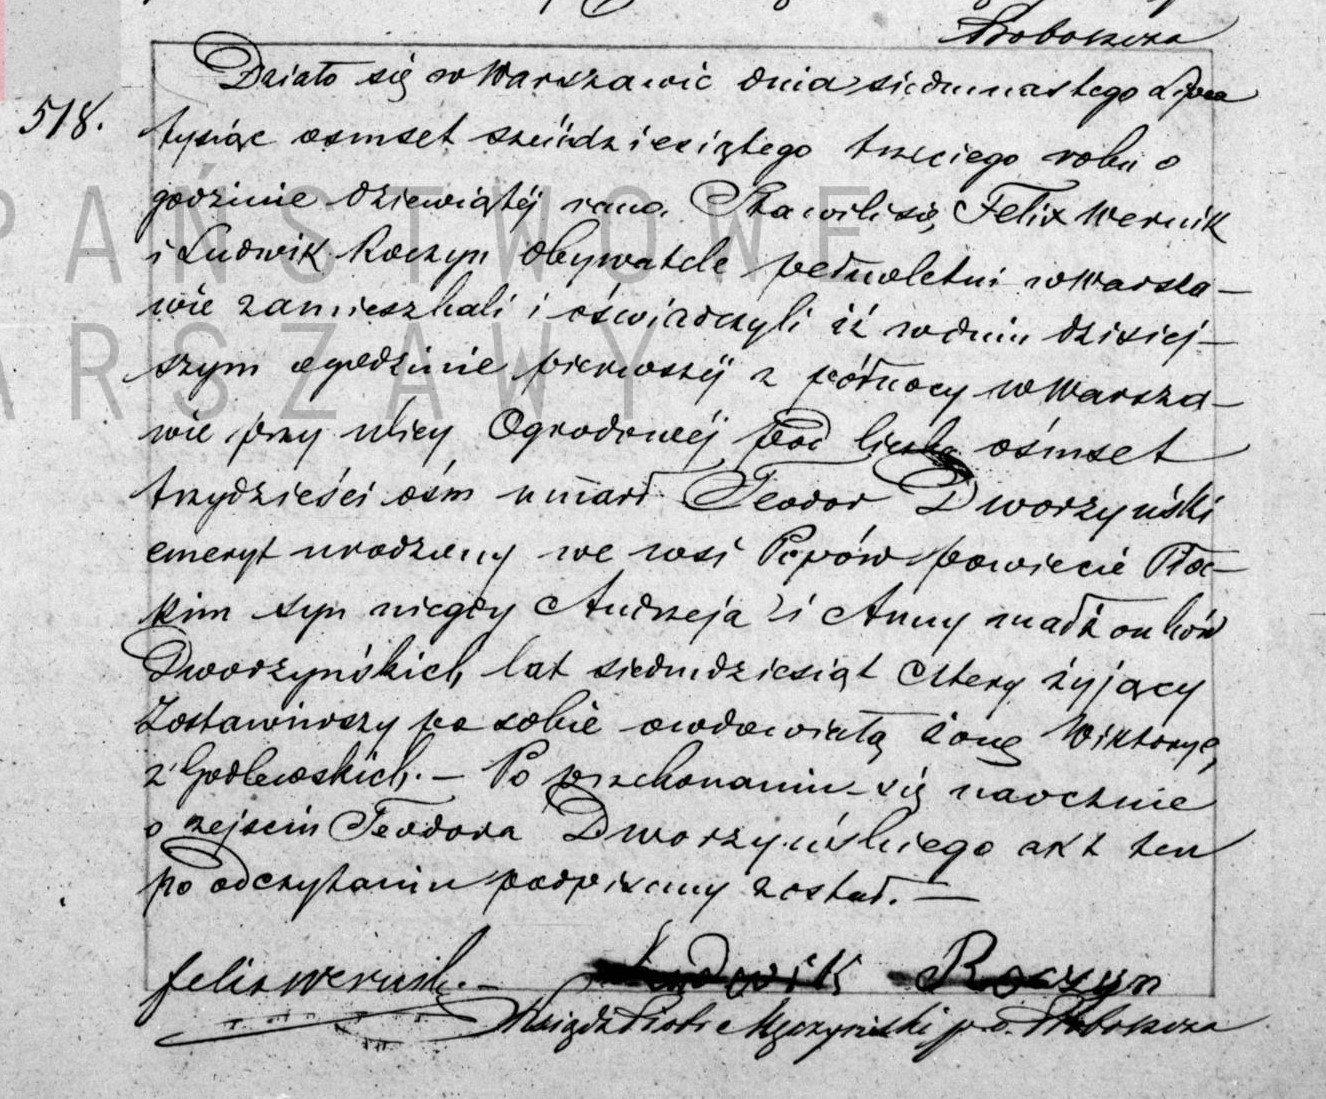 Proboszcza
518.
Działo się w Warszawie dnia siedmnastego Lipca
tysiąc osmset sześćdziesiątego trzeciego roku o
godzinie dziewiątéj rano. Stawili się, Felix Wernik
i Ludwik Roczyn obywatele pełnoletni w Warsza-
wie zamieszkali i oświadczyli iż w dniu dzisiej-
szym o godzinie pierwszéj z północy w Warsza-
wie przy ulicy Ogrodowéj pod liczbą ośmset
trzydzieści ośm umarł Teodor Dworzyński
emeryt urodzony we wsi Popów powiecie Płoc-
kim syn niegdy Andrzeja i Anny małżonków
Dworzyńskich, lat siedmdziesiąt cztery żyjący
Zostawiwszy po sobie owdowiałą żonę Wiktoryę,
z Godlewskich. — Po przekonaniu się naocznie
o zejściu Teodora Dworzyńskiego akt ten
po odczytaniu podpisany został. —
Felix Wernik. - Ludwik Roczyn
Ksiądz Piotr Męczyński p. o. Proboszcza
PAŃSTWOWE
WARSZAWY